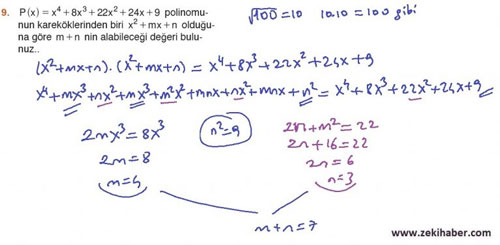 9. P(x) = x⁴ + 8x³ + 22x² + 24x + 9 polinomu-
nun kareköklerinden biri x² + mx + n olduğu-
na göre m + n nin alabileceği değeri bulu-
nuz..
√100 = 10 10.10 = 100 gibi
(x²+mx+n).(x²+mx+n) = x⁴+8x³+22x²+24x+9
x⁴+mx³+nx²+mx³+m²x²+mnx+nx²+mnx+n² = x⁴+8x³+22x²+24x+9
2mx³=8x³
2m=8
m=4
n²=9
2n+m²=22
2n+16=22
2n=6
n=3
m+n=7
www.zekihaber.com